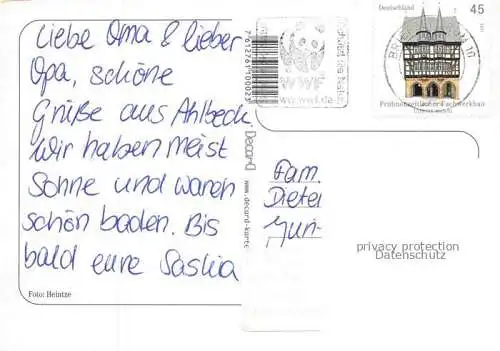 Liebe Oma & lieber
Opa, schöne
Grüße aus Ahlbeck
Wir haben meist
Sonne und waren
schön baden. Bis
bald eure Saskia
Foto: Heintze
7612761100023
WWF
www.wwf.de
Decard
www.decard-karte
Deutschland
45
10
Frühneuzeitlicher Fachwerkbau
Fam.
Dieter
privacy protection
Datenschutz